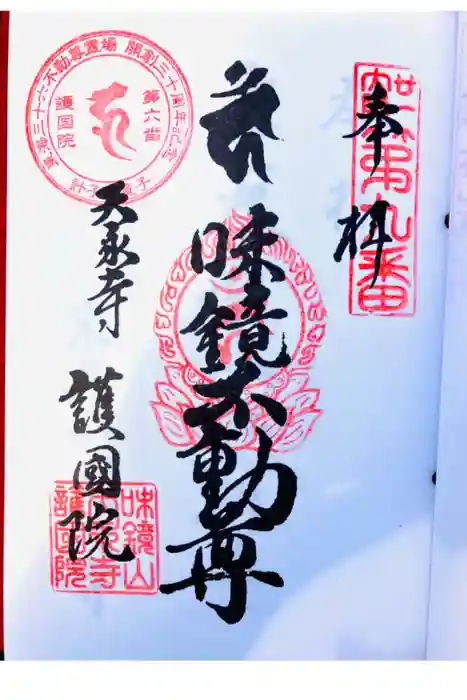 奉拝
第九番
味鏡不動尊
天永寺
護國院
東海三十六不動尊霊場 開創三十周年記念
第六番
護国院
味鏡山
天永寺
護国院